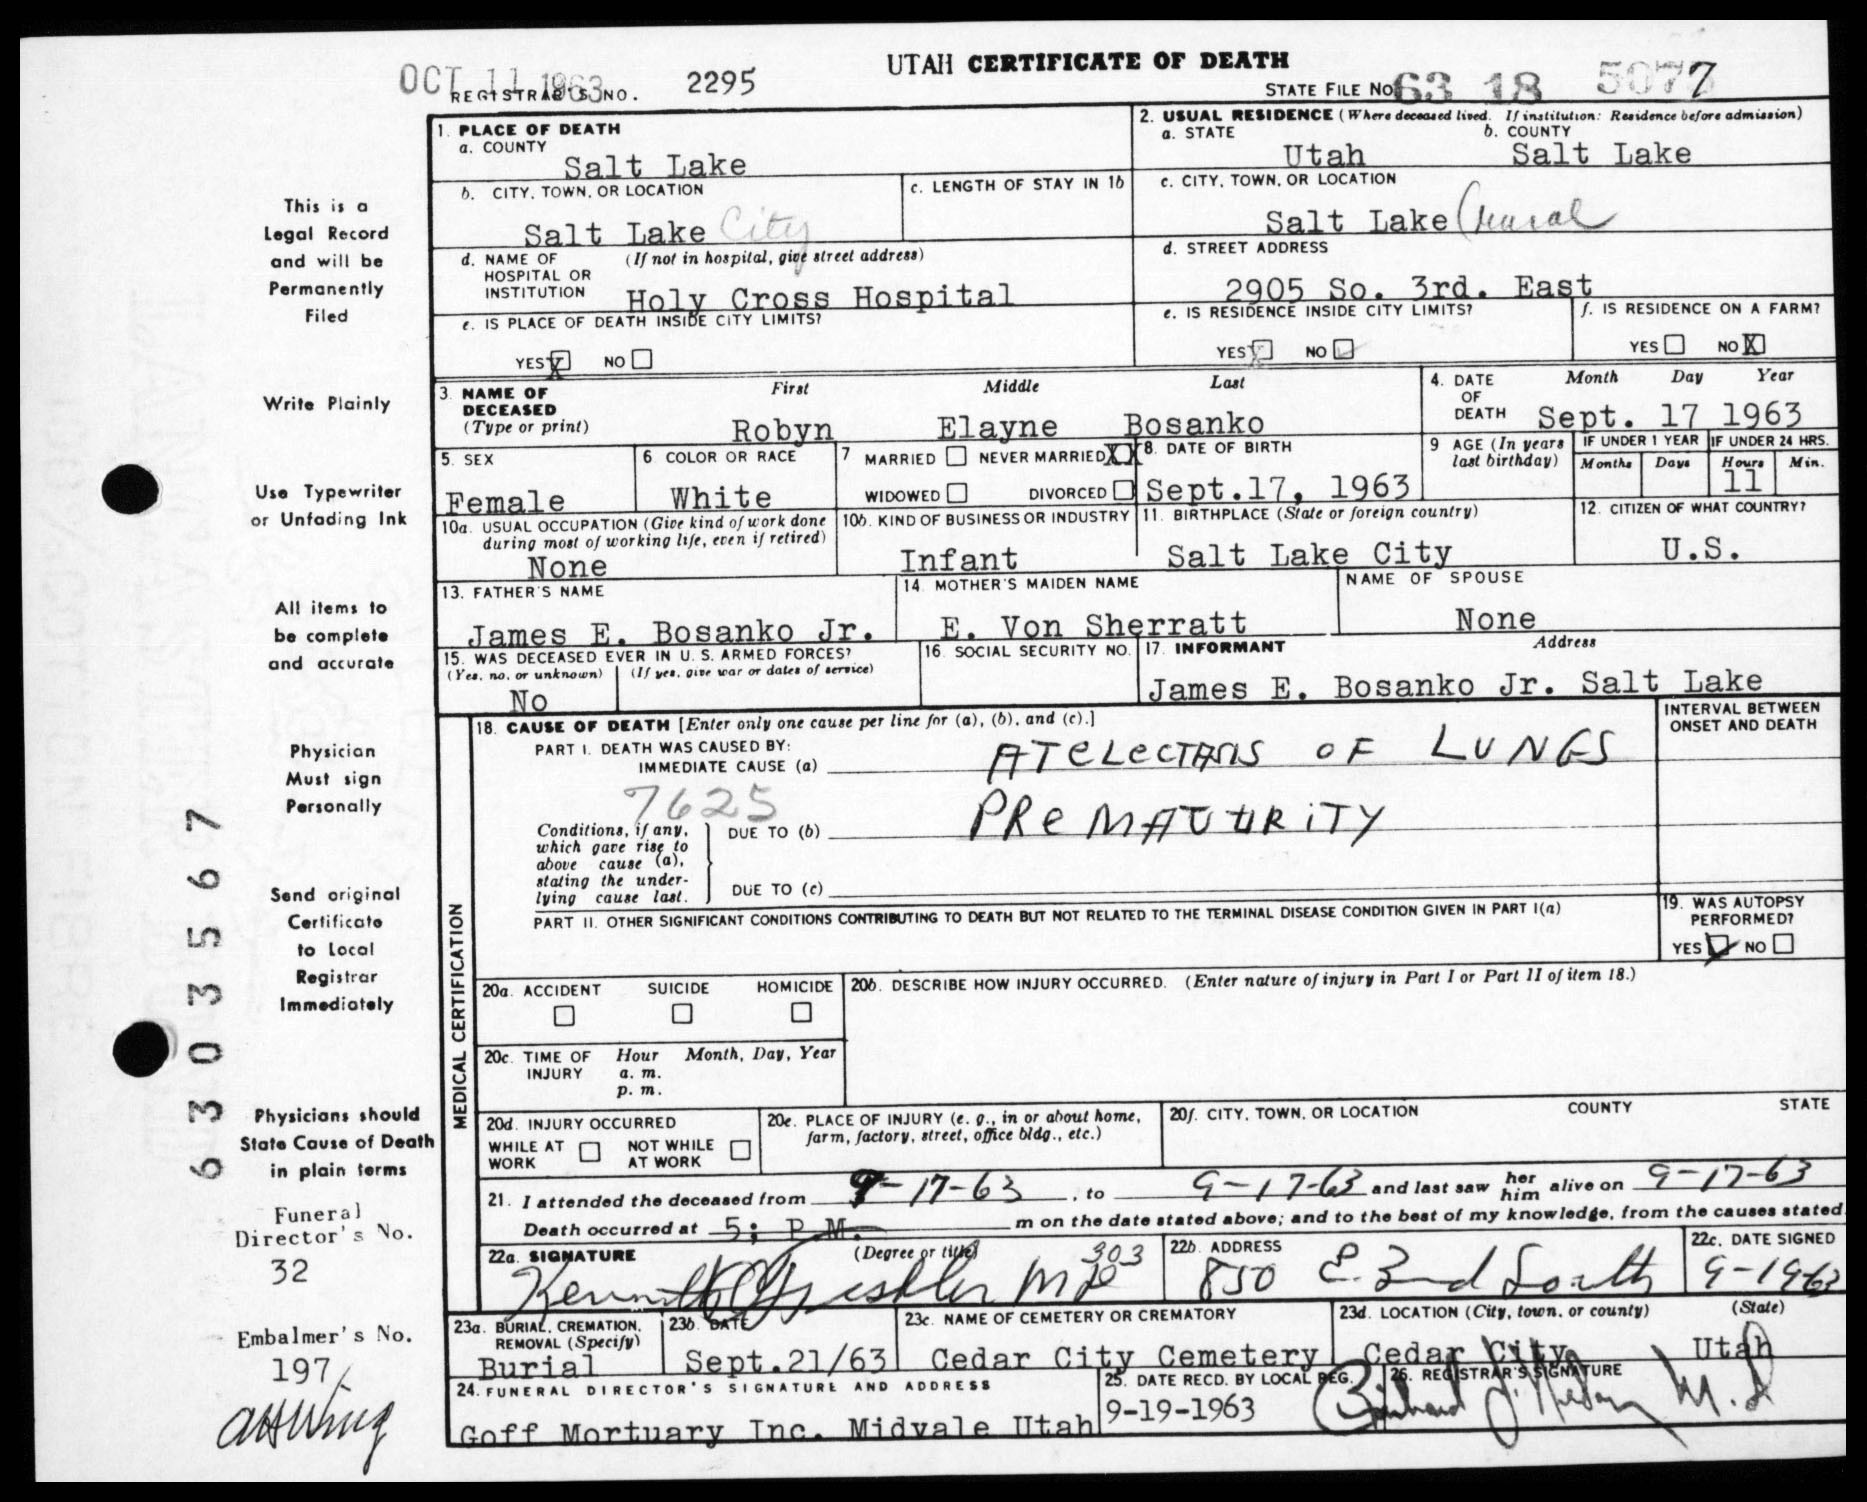 UTAH CERTIFICATE OF DEATH
OCT 11 1963
REGISTRAR'S NO. 2295
STATE FILE NO. 63 18 5077
1. PLACE OF DEATH
a. COUNTY
Salt Lake
b. CITY, TOWN, OR LOCATION
Salt Lake City
c. LENGTH OF STAY IN 1b
d. NAME OF HOSPITAL OR INSTITUTION (If not in hospital, give street address)
Holy Cross Hospital
e. IS PLACE OF DEATH INSIDE CITY LIMITS?
YES X NO
2. USUAL RESIDENCE (Where deceased lived. If institution: Residence before admission)
a. STATE b. COUNTY
Utah Salt Lake
c. CITY, TOWN, OR LOCATION
Salt Lake (rural
d. STREET ADDRESS
2905 So. 3rd. East
e. IS RESIDENCE INSIDE CITY LIMITS?
YES X NO ✓
f. IS RESIDENCE ON A FARM?
YES NO X
3. NAME OF DECEASED (Type or print)
First Middle Last
Robyn Elayne Bosanko
4. DATE OF DEATH
Month Day Year
Sept. 17 1963
5. SEX
Female
6 COLOR OR RACE
White
7 MARRIED NEVER MARRIED XX
WIDOWED DIVORCED
8. DATE OF BIRTH
Sept.17, 1963
9 AGE (In years last birthday)
IF UNDER 1 YEAR IF UNDER 24 HRS.
Months Days Hours Min.
11
10a. USUAL OCCUPATION (Give kind of work done during most of working life, even if retired)
None
10b. KIND OF BUSINESS OR INDUSTRY
Infant
11. BIRTHPLACE (State or foreign country)
Salt Lake City
12. CITIZEN OF WHAT COUNTRY?
U.S.
13. FATHER'S NAME
James E. Bosanko Jr.
14. MOTHER'S MAIDEN NAME
E. Von Sherratt
NAME OF SPOUSE
None
15. WAS DECEASED EVER IN U. S. ARMED FORCES?
(Yes, no, or unknown) (If yes, give war or dates of service)
No
16. SOCIAL SECURITY NO.
17. INFORMANT Address
James E. Bosanko Jr. Salt Lake
18. CAUSE OF DEATH [Enter only one cause per line for (a), (b), and (c).]
PART I. DEATH WAS CAUSED BY:
IMMEDIATE CAUSE (a) ATELECTASIS OF LUNGS
7625
Conditions, if any, which gave rise to above cause (a), stating the underlying cause last.
DUE TO (b) PREMATURITY
DUE TO (c)
INTERVAL BETWEEN ONSET AND DEATH
PART II. OTHER SIGNIFICANT CONDITIONS CONTRIBUTING TO DEATH BUT NOT RELATED TO THE TERMINAL DISEASE CONDITION GIVEN IN PART I(a)
19. WAS AUTOPSY PERFORMED?
YES ✓ NO
MEDICAL CERTIFICATION
20a. ACCIDENT SUICIDE HOMICIDE
20b. DESCRIBE HOW INJURY OCCURRED. (Enter nature of injury in Part I or Part II of item 18.)
20c. TIME OF INJURY Hour Month, Day, Year
a. m.
p. m.
20d. INJURY OCCURRED
WHILE AT WORK NOT WHILE AT WORK
20e. PLACE OF INJURY (e. g., in or about home, farm, factory, street, office bldg., etc.)
20f. CITY, TOWN, OR LOCATION COUNTY STATE
21. I attended the deceased from 9-17-63, to 9-17-63 and last saw her him alive on 9-17-63
Death occurred at 5; P.M. m on the date stated above; and to the best of my knowledge, from the causes stated.
22a. SIGNATURE (Degree or title) 303
Kenneth MD
22b. ADDRESS
850 E. 3nd South
22c. DATE SIGNED
9-19-63
23a. BURIAL, CREMATION, REMOVAL (Specify)
Burial
23b. DATE
Sept.21/63
23c. NAME OF CEMETERY OR CREMATORY
Cedar City Cemetery
23d. LOCATION (City, town, or county) (State)
Cedar City Utah
24. FUNERAL DIRECTOR'S SIGNATURE AND ADDRESS
Goff Mortuary Inc. Midvale Utah
25. DATE RECD. BY LOCAL REG.
9-19-1963
26. REGISTRAR'S SIGNATURE
M.D
This is a
Legal Record
and will be
Permanently
Filed
Write Plainly
Use Typewriter
or Unfading Ink
All items to
be complete
and accurate
Physician
Must sign
Personally
Send original
Certificate
to Local
Registrar
Immediately
Physicians should
State Cause of Death
in plain terms
Funeral
Director's No.
32
Embalmer's No.
197
6303567